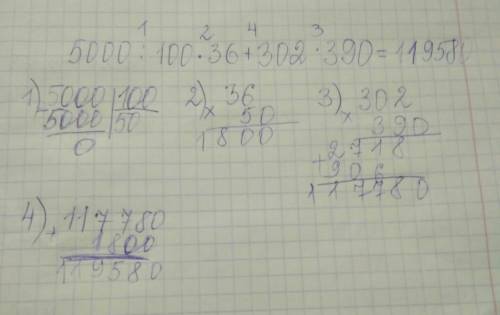 1 2 4 3
5000 : 100 · 36 + 302 · 390 = 119580
1) 5000 | 100
5000 | 50
0
2) 36
× 50
1800
3) 302
× 390
2718
+ 906
117780
4) 117780
1800
119580